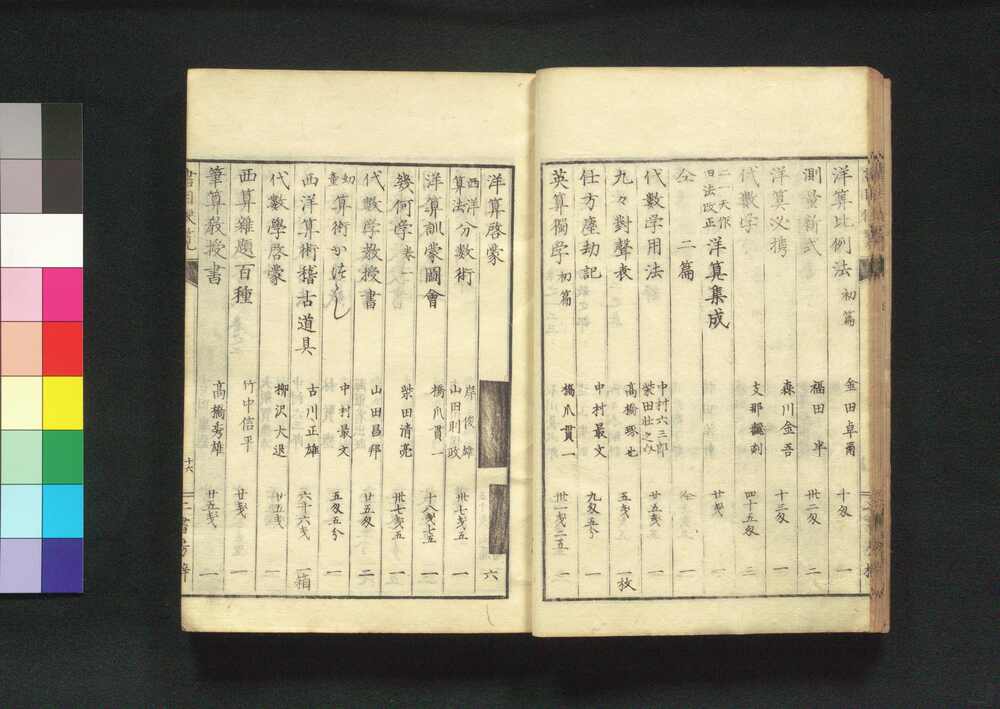 洋算比例法 初篇 金田卓爾 十匁 一
測量新式 福田半 卅二匁 二
洋算必携 森川金吾 十三匁 一
代數学 支那飜刻 四十五匁 三
二一天作 九日法改正 洋算集成 廿戔 一
仝 二篇 仝 一
代數学用法 中村六三郎 柴田壮之助 廿五戔 一
九々對聲表 高橋琢也 五戔 一枚
仕方塵劫記 中村最文 九匁五分 一
英算獨学 初篇 橋爪貫一 卅一戔二五 一
洋算啓蒙 六
西洋算法 分數術 岸俊雄 山田則政 卅七戔五 一
洋算訓蒙圖會 橋爪貫一 十八戔七五 一
幾何学 巻一 柴田清亮 卅七戔五 一
代數学教授書 山田昌邦 廿五匁 二
幼童 算術かぞへし 中村最文 五匁五分 一
西洋算術稽古道具 古川正雄 六十六戔 一箱
代數學啓蒙 柳沢大退 廿五戔 一
西算雜題百種 竹中信平 廿戔 一
筆算教授書 高橋秀雄 廿五戔 一
十六